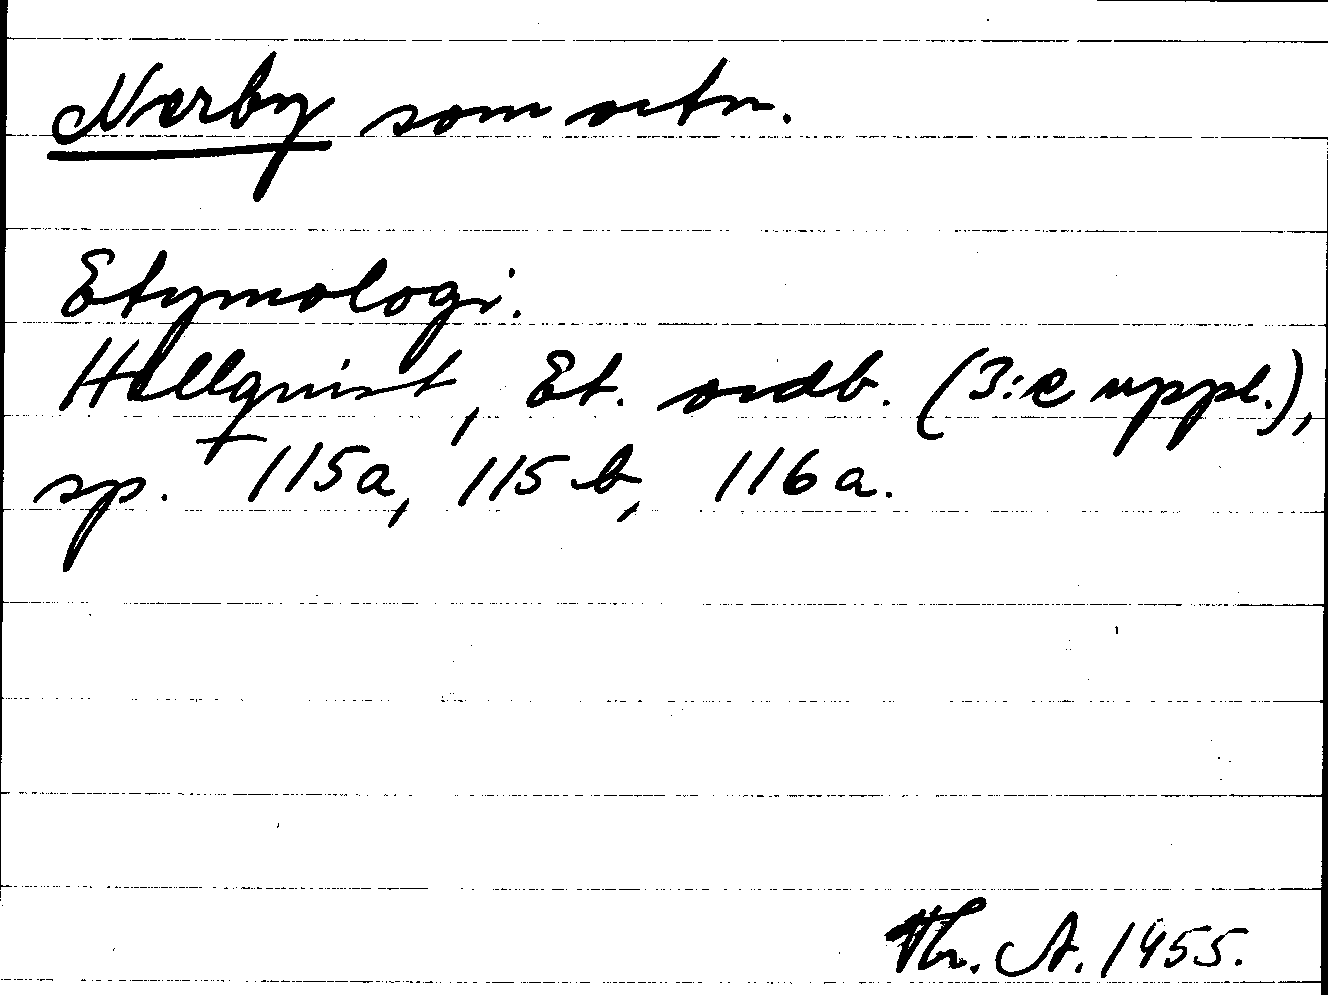 Nerby som ortn.
Etymologi.
Hellquist, Et. ordb. (3:e uppl.),
sp. 115a, 115 b, 116a.
Th. A. 1955.